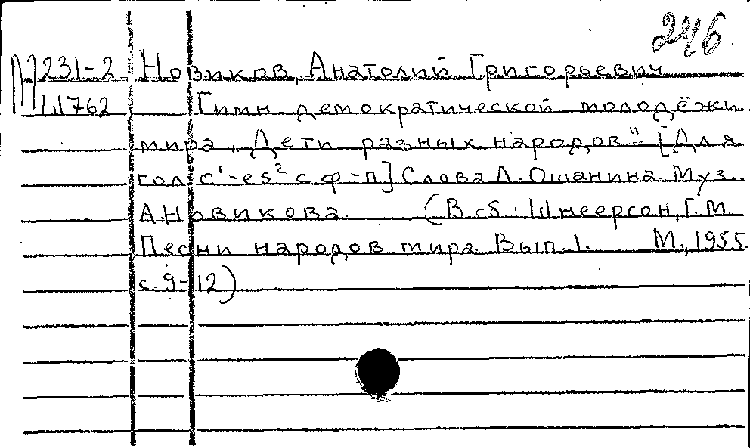 246
М231-2 Новиков, Анатолий Григорьевич
Ш762 Гимн демократической молодёжи
мира „Дети разных народов" [Для
гол. c¹-es² с ф-п] Слова Л. Ошанина Муз.
А Новикова. (В сб.: Шнеерсон, Г. М.
Песни народов мира. Вып. 1. М., 1955
с. 9-12)